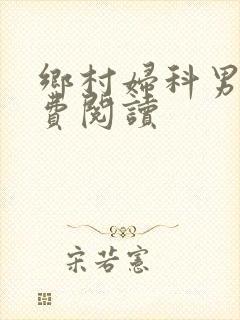 鄉村婦科男
費閱讀
宋若憲